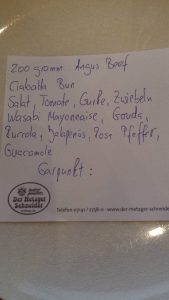 200 gramm Angus Beef
Ciabatta Bun
Salat, Tomate, Gurke, Zwiebeln
Wasabi Mayonnaise, Gouda,
Rucola, Jalapenos, Rosa Pfeffer,
Guacamole
Garpunkt:
Der Metzger
Schneider
www.der-metzger-schneider